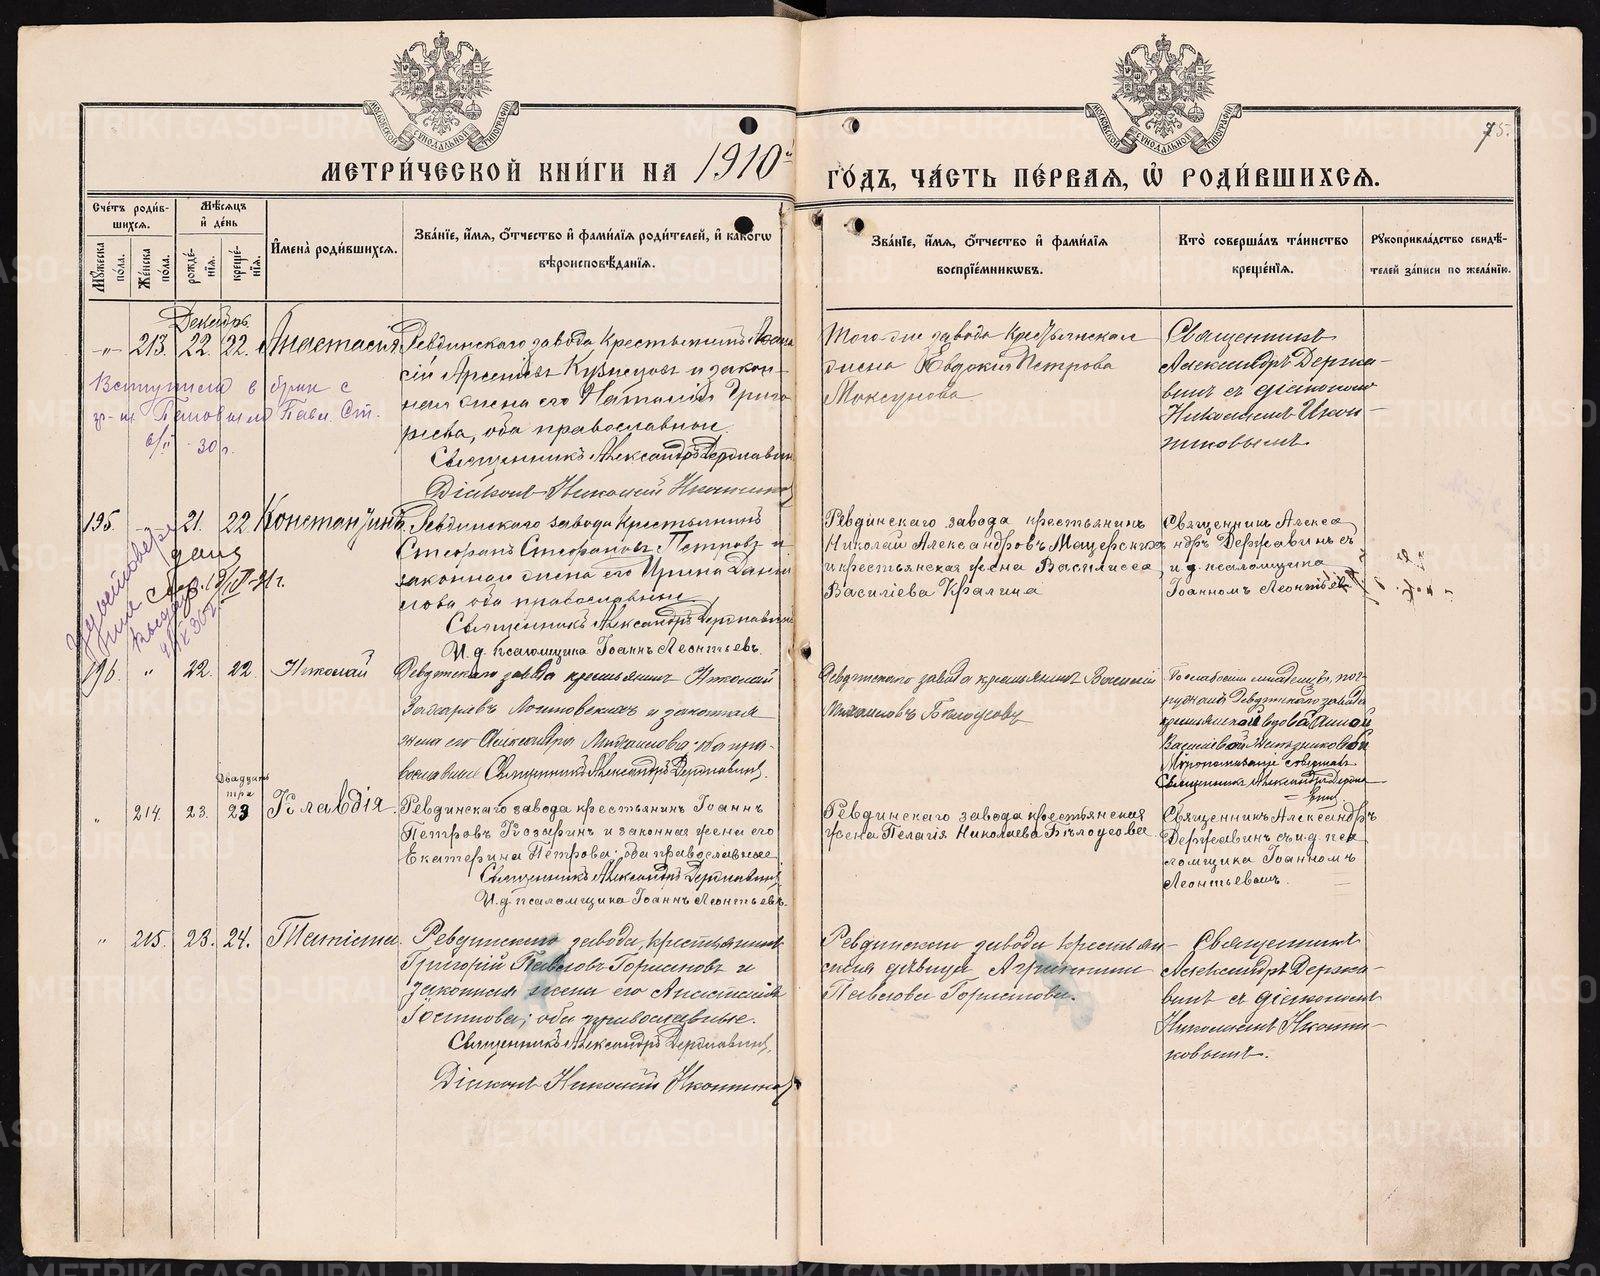 МОСКОВСКОЙ СѴНОДАЛЬНОЙ ТИПОГРАФІИ
МОСКОВСКОЙ СѴНОДАЛЬНОЙ ТИПОГРАФІИ
75.
МЕТРИ́ЧЕСКОЙ КНИ́ГИ НА 1910й
ГО́ДЪ, ЧА́СТЬ ПЕ́РВАЯ, Ѿ РОДИ́ВШИХСЯ.
Сче́тъ роди́в-
шихся.
Мꙋжеска по́ла.
Же́нска по́ла.
Мѣ́сяцъ
и де́нь
рожде́-
нїя.
креще́-
нїя.
Имена̀ роди́вшихся.
Зва́нїе, и́мя, ѻ́тчество и фами́лїя роди́телей, и како́гѡ
вѣроисповѣ́данїя.
Зва́нїе, и́мя, ѻ́тчество и фами́лїя
воспрїе́мникѡвъ.
Кто̀ соверша́лъ та́инство
креще́нїя.
Рꙋкоприкла́дство свидѣ́-
телей за́писи по жела́нїю.
Декабрь
-„- 213. 22. 22. Анастасія
Ревдинскаго завода крестьянинъ
сій Арсеніевъ Кузнецовъ и закон-
ная жена его Наталія Григо
рьева, оба православные.
Священникъ Александръ Державинъ
Діаконъ Николай Иконников
Того-же завода крестьянская
жена Евдокия Петрова
Священникъ
Александръ Держа-
винъ съ діакономъ
Николаемъ Икон-
никовымъ
Вступила в брак с
гр-м Пановым Павл. Ст.
30 г.
195. - 21. 22 Константинъ
Ревдинскаго завода крестьянинъ
Стефанъ Стефановъ Петровъ и
законная жена его Ирина Дани
лова оба православные
Священникъ Александръ Державинъ
И. д. псаломщика Іоаннъ Леонтьевъ.
Ревдинскаго завода крестьянинъ
Николай Александровъ Мацерскихъ
и крестьянская жена Василисса
Василіева Кралина
Священникъ Алекса
ндръ Державинъ съ
и. д. псаломщика
Іоанномъ Леонтьев
196. „ 22. 22. Николай
Ревдинскаго завода крестьянинъ Николай
Захаровъ Логиновскихъ и законная
жена его Александра Михаилова, оба пра-
вославные Священникъ Александръ Державинъ.
Ревдинскаго завода крестьянинъ Василій
Михаиловъ Белоусовъ
По слабости младенецъ, пог-
ружен Ревдинскаго завода
крестьянской вдовой Анной
Мѵропомазаніе совершалъ
Священникъ Александръ Держа-
винъ
Двадцать
три
„ 214. 23. 23 Клавдія
Ревдинскаго завода крестьянинъ Іоаннъ
Петровъ Козыринъ и законная жена его
Екатерина Петрова; оба православные
Священникъ Александръ Державинъ
И. д. псаломщика Іоаннъ Леонтьевъ.
Ревдинскаго завода крестьянская
жена Пелагія Николаева Бѣлоусова
Священникъ Александръ
Державинъ съ и. д. пса
ломщика Іоанномъ
Леонтьевымъ.
„ 215. 23. 24. Татіана.
Ревдинскаго завода, крестьянинъ
Григорій Павловъ Горшановъ и
законная жена его Анастасія
оба православные.
Священникъ Александръ Державинъ.
Діаконъ Николай Иконников
Ревдинскаго завода крестьян-
ская дѣвица Агриппина
Павлова Горшанова.
Священникъ
Александръ Держа-
винъ съ діакономъ
Николаемъ Иконни-
ковымъ.
METRIKI.GASO-URAL.RU